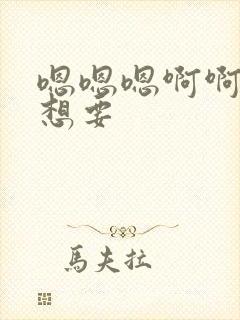 嗯嗯嗯啊啊
想要
馬夫拉